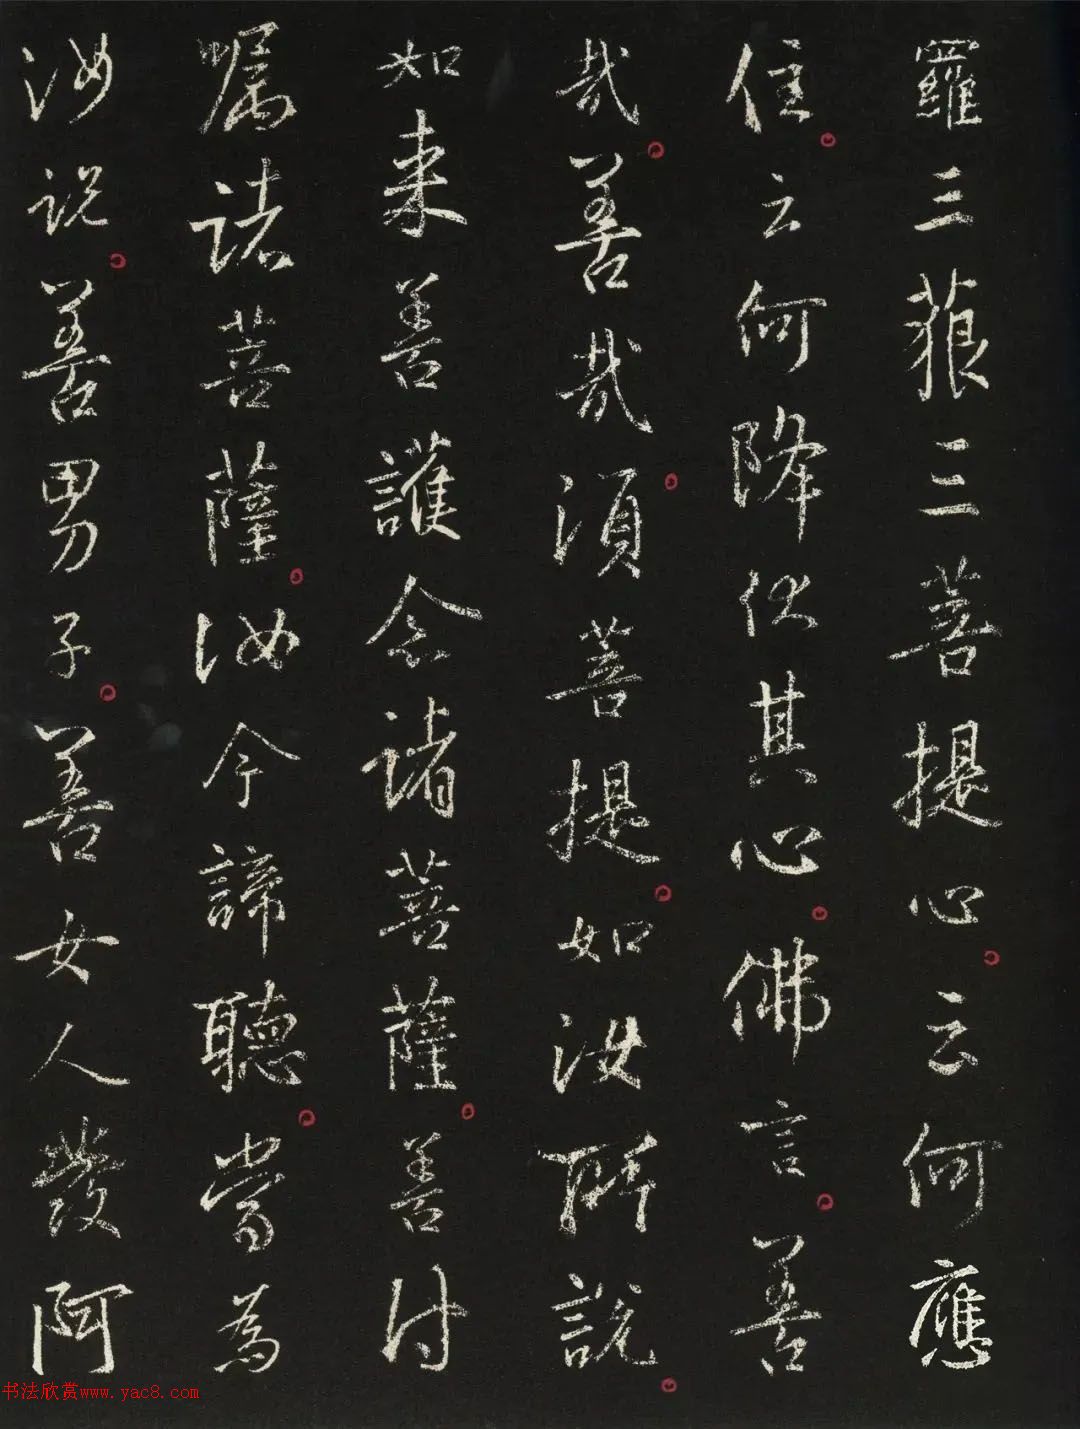 羅三藐三菩提心。云何應
住。云何降伏其心。佛言。善
哉。善哉。須菩提。如汝所說。
如来善護念諸菩薩。善付
嘱諸菩薩。汝今諦聽。當為
汝說。善男子。善女人發阿
书法欣赏www.yac8.com